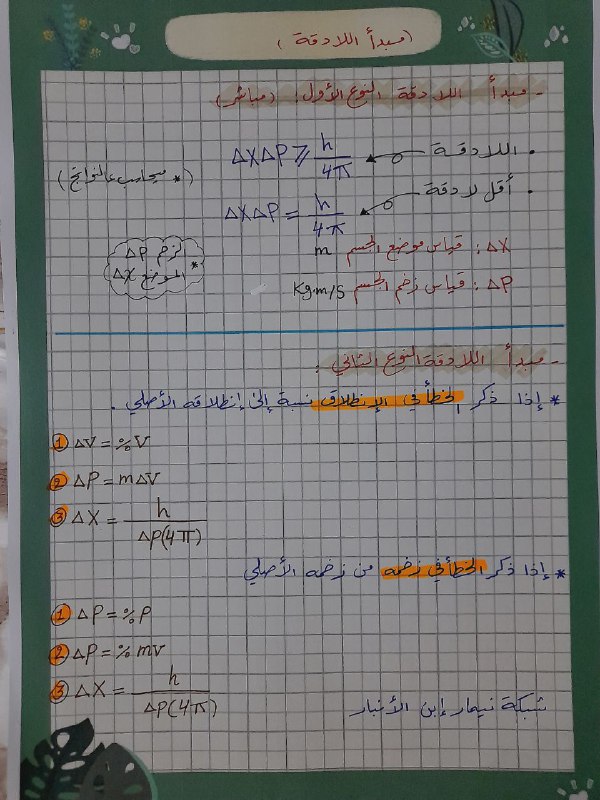 (مبدأ اللادقة)
- مبدأ اللادقة النوع الأول: (مباشر)
• اللادقة ΔXΔP ≥ h/4π
(* يحاسب عالنواتج)
• أقل لادقة ΔXΔP = h/4π
ΔX: قياس موضع الجسم m
ΔP: قياس زخم الجسم Kgm/s
* الزخم ΔP
الموضع ΔX
- مبدأ اللادقة النوع الثاني:
* إذا ذكر الخطأ في الإنطلاق نسبة إلى إنطلاقه الأصلي.
1 ΔV = %V
2 ΔP = mΔV
3 ΔX = h/ΔP(4π)
* إذا ذكر الخطأ في زخمه من زخمه الأصلي
1 ΔP = %P
2 ΔP = %mv
3 ΔX = h/ΔP(4π)
شبكة نيمار إبن الأنبار